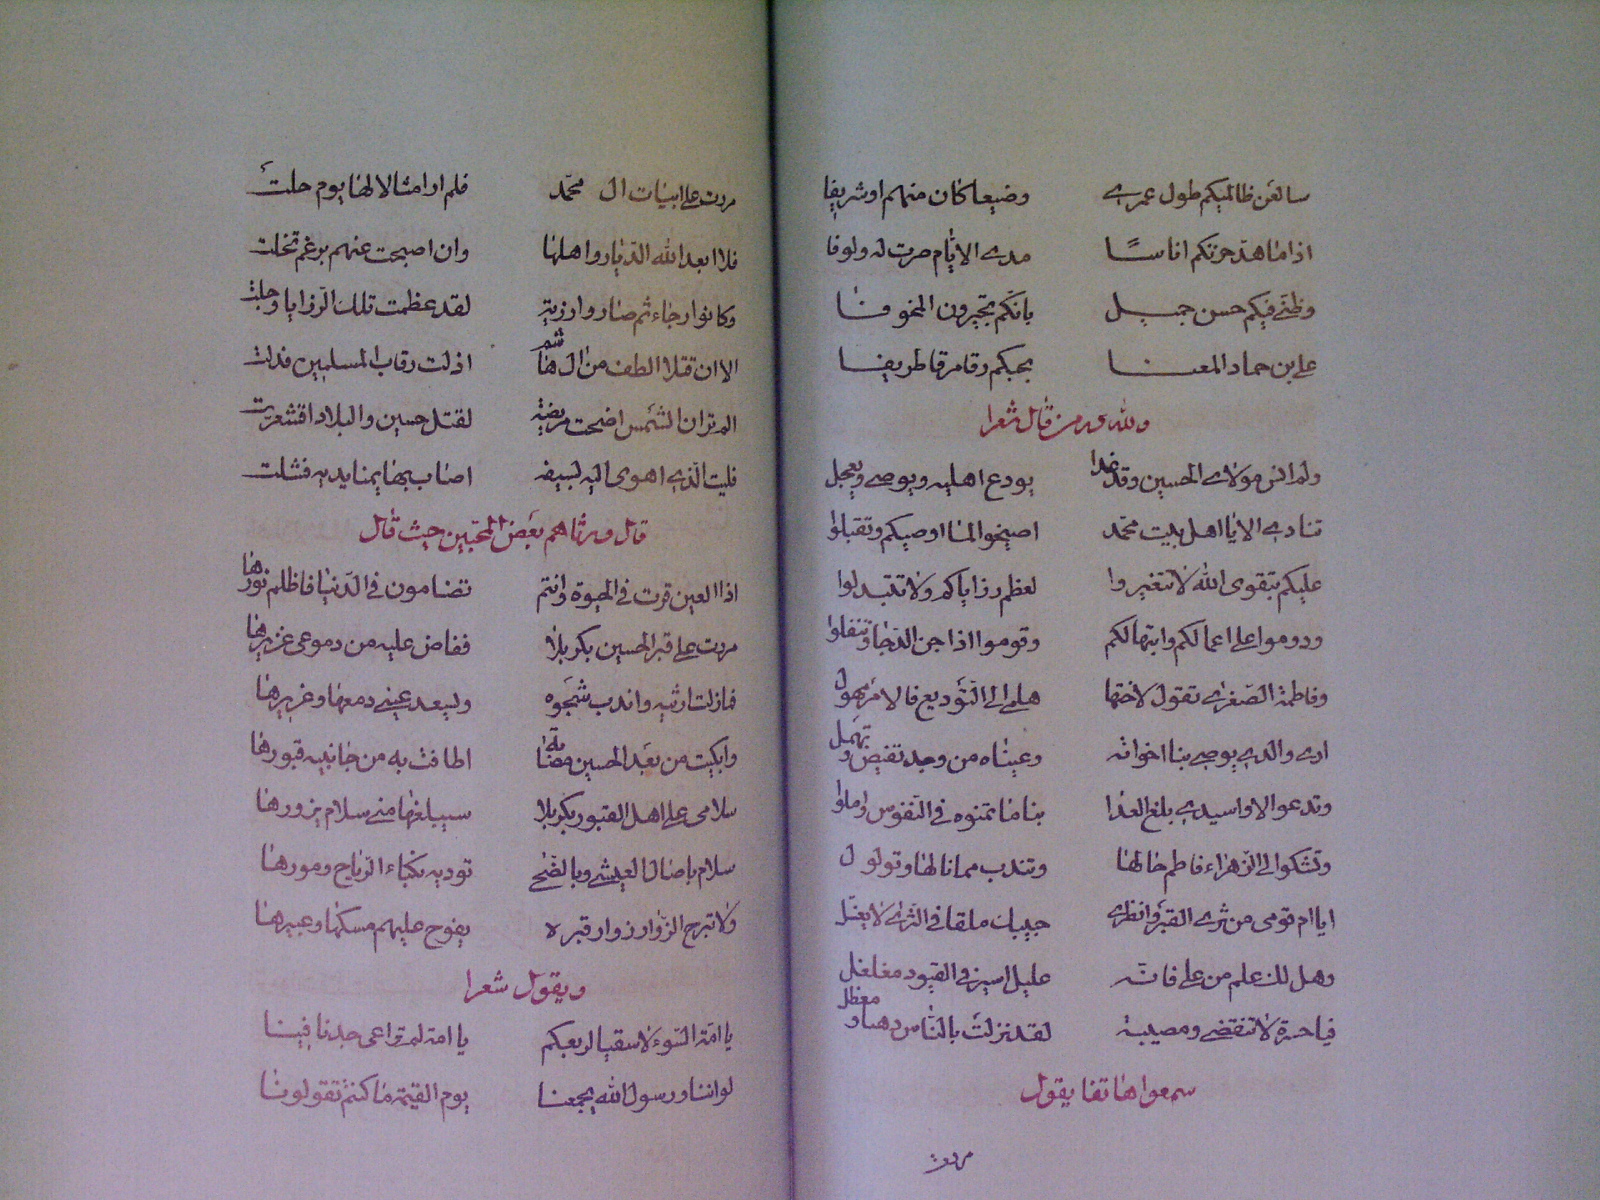 سالعن ظالميكم طول عمري وضيعا كان منهم او شريفا
اذا ما هد حزنكم اناسا مدى الايام صرت له ولوفا
وظني فيكم حسن جميل بانكم تجيرون المخوفا
علي بن حماد المعنا بحبكم وقا مرقا طريفا
ولله در من قال شعرا
ولم انس مولاي الحسين وقد غدا يودع اهليه ويوصي ويعجل
تنادي الا يا اهل بيت محمد اصيخوا لما اوصيكم وتقبلوا
عليكم بتقوى الله لا تتغيروا لعظم رزاياكم ولا تتبدلوا
ودوموا على اعمالكم وابتهالكم وقوموا اذا جن الدجا وتنفلوا
وفاطمة الصغرى تقول لاختها هلمي الى التوديع فالامر مهول
ارى والدي يوصي بنا اخواته وعيناه من وجد تفيض وتهمل
وتدعوا الا واسيدي بلغ العدا بنا ما تمنوه في النفوس واملوا
وتشكوا الى الزهراء فاطم حالها وتندب مما نالها وتولول
ايا ام قومي من ثرى القبر وانظري حبيبك ملقا في الثرى لا يغسل
وهل لك علم من علي فانه عليل اسير في القيود مغلغل
فيا حسرة لا تنقضي ومصيبة لقد نزلت بالناس دهيا ومعظل
سمعوا هاتفا يقول
مررت
مررت على ابيات ال محمد فلم ار امثالا لها يوم حلت
فلا ابعد الله الديار واهلها وان اصبحت عنهم برغم تخلت
وكانوا رجاء ثم صاروا رزية لقد عظمت تلك الرزايا وجلت
الا ان قتلا الطف من ال هاشم اذلت رقاب المسلمين فذلت
الم تر ان الشمس اضحت مريضة لقتل حسين والبلاد اقشعرت
فليت الذي اهوى اليه بسيفه اصاب بها يمنا يديه فشلت
قال ورثاهم بعض المحبين حيث قال
اذا العين قرت في الحيوة وانتم تضامون في الدنيا فاظلم نورها
مررت على قبر الحسين بكربلا ففاض عليه من دموعي غزيرها
فما زلت ارثيه واندب شجوه ويسعد عيني دمعها وغزيرها
وابكيت من بعد الحسين مصابة اطافت به من جانبيه قبورها
سلامي على اهل القبور بكربلا سيبلغها مني سلام يزورها
سلام باصال العشي وبالضحى توديه نكباء الرياح ومورها
ولا تبرح الزوار زوار قبره يفوح عليهم مسكها وعبيرها
ويقول شعرا
يا امة السوء لا سقيا لربعكم يا امة لم تراعى جدنا فينا
لو اننا ورسول الله يجمعنا يوم القيمة ما كنتم تقولونا